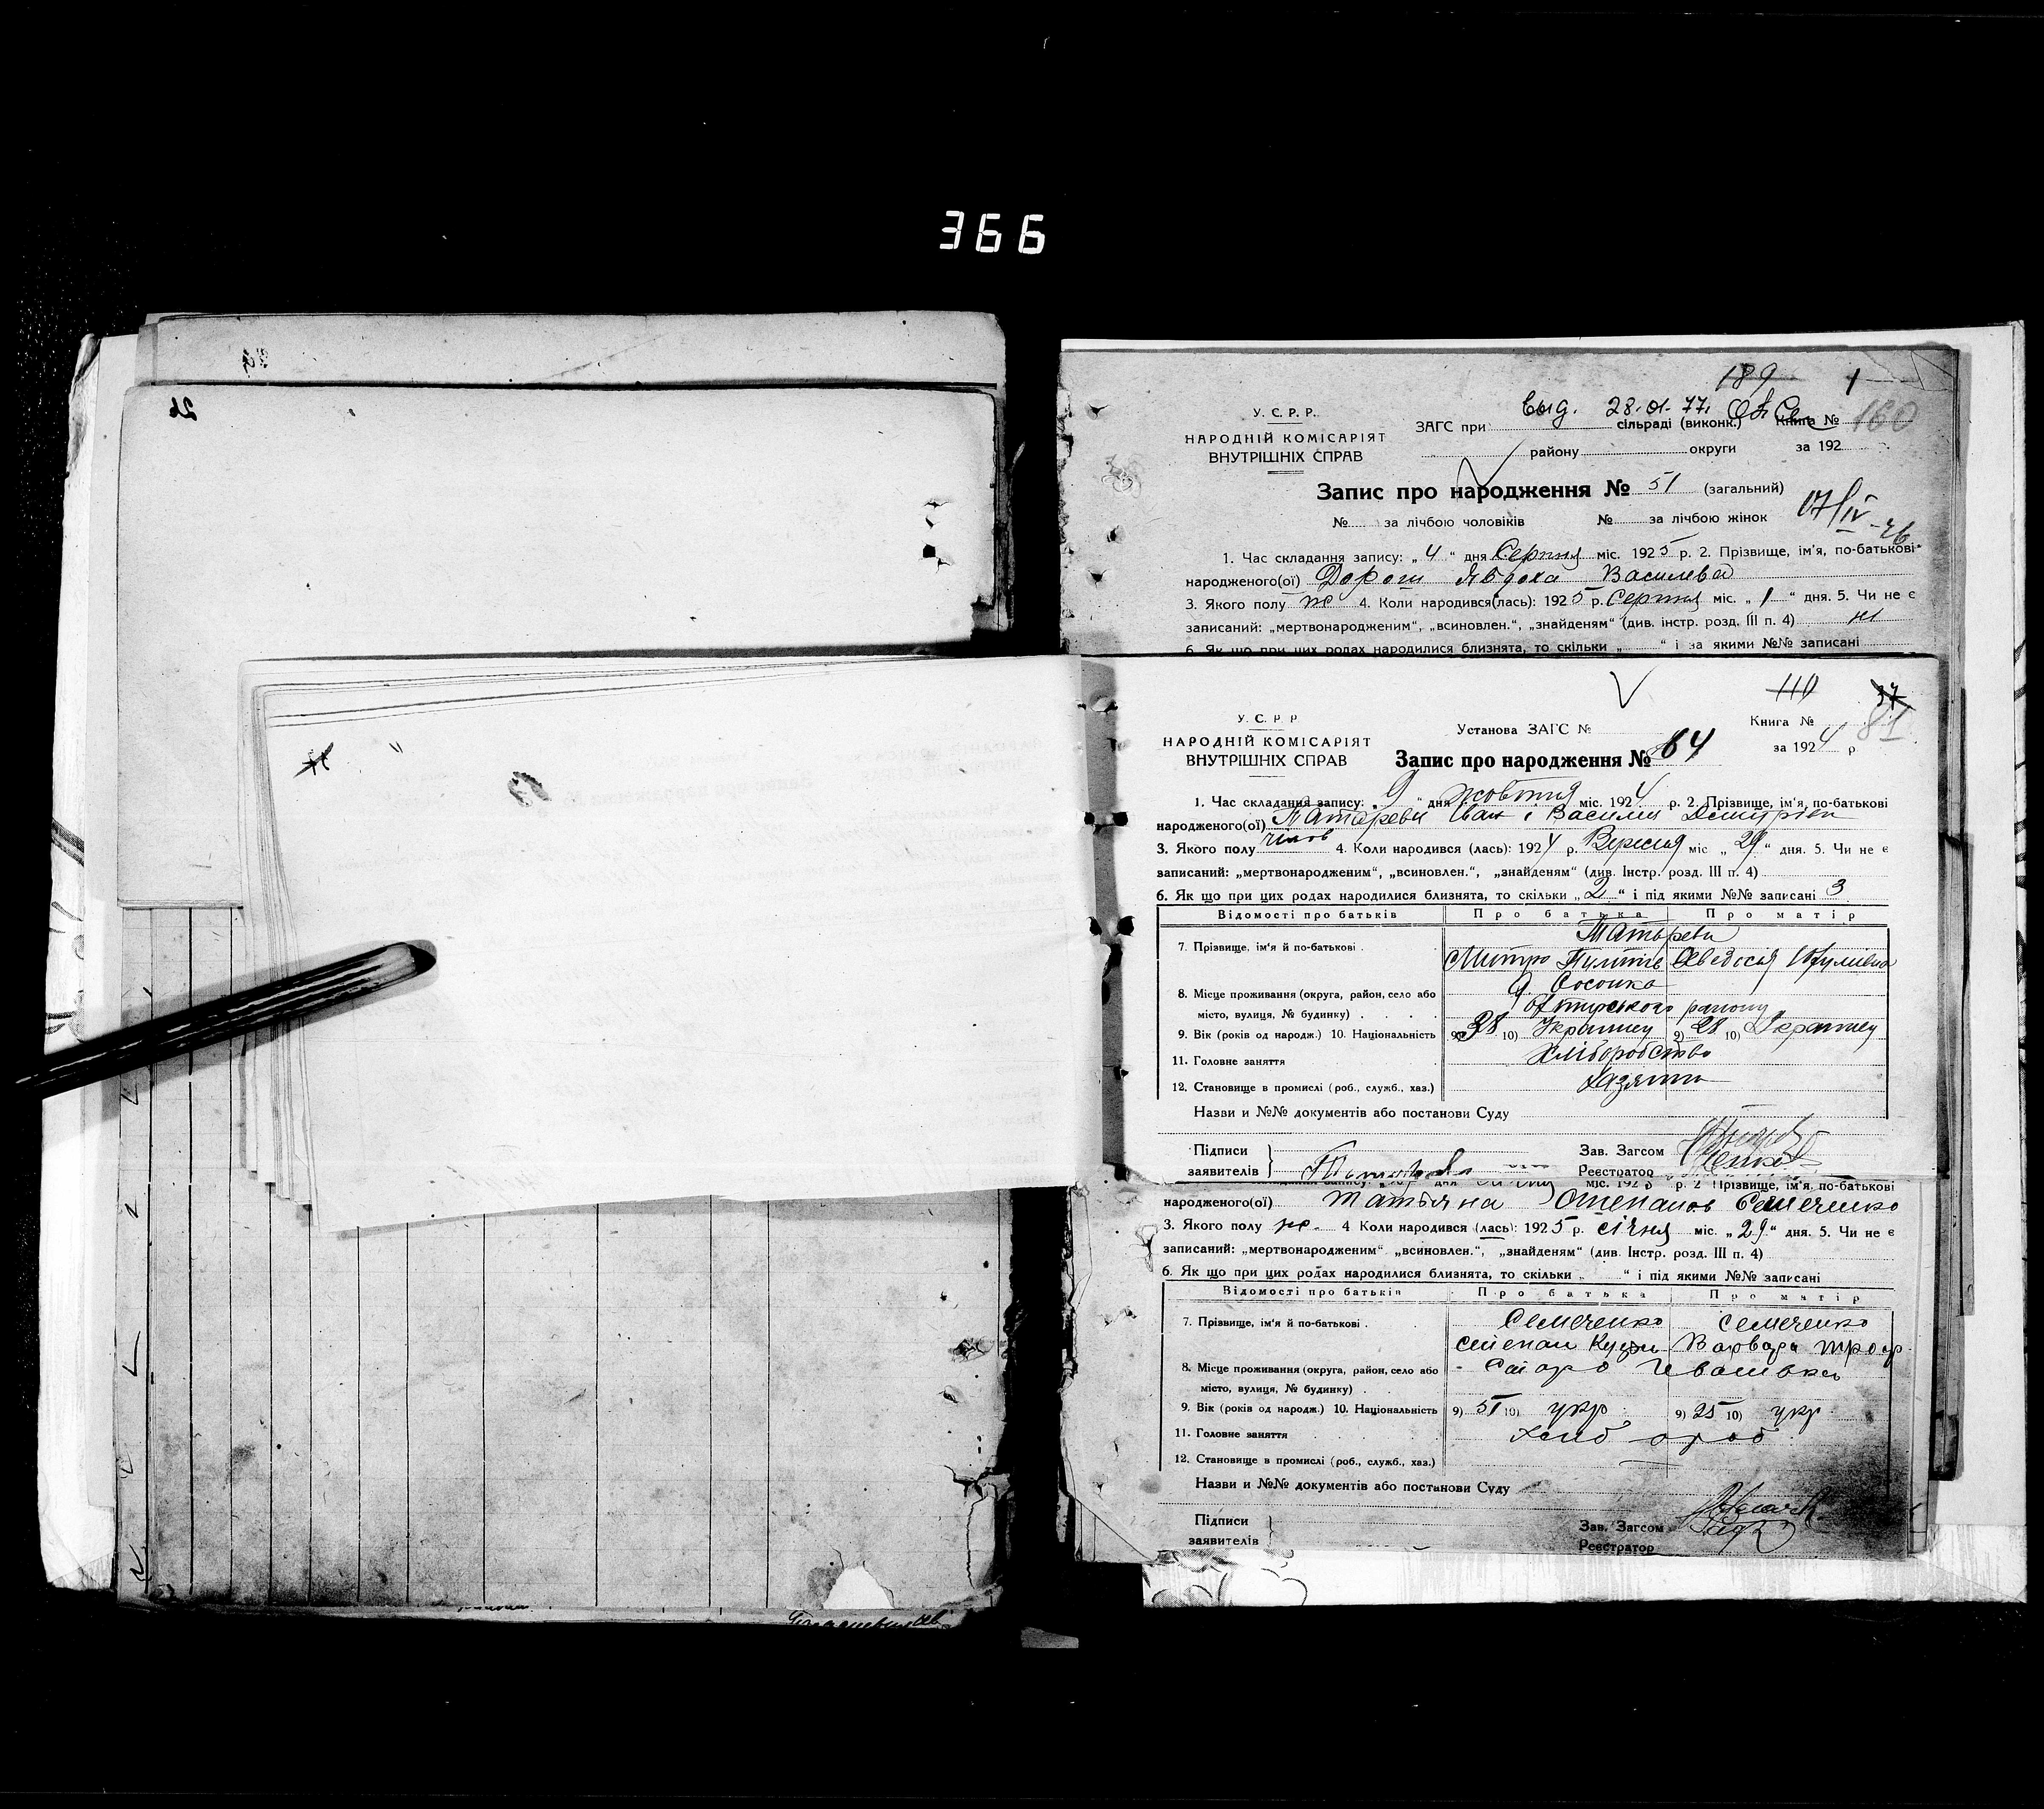 366
26
189 1
выд. 28.01.77.
У. С. Р. Р. ЗАГС при сільраді (виконк.) Книга № 160
НАРОДНІЙ КОМІСАРІЯТ
ВНУТРІШНІХ СПРАВ району округи за 192
Запис про народження № 51 (загальний)
№ за лічбою чоловіків № за лічбою жінок 17/IV-26
1. Час складання запису: „ 4 “ дня Серпня міс. 1925 р. 2. Прізвище, ім'я, по-батькові
народженого(ої) Дорош Явдоха Василева
3. Якого полу ж 4. Коли народився(лась): 1925 р. Серпня міс. „ 1 “ дня. 5. Чи не є
записаний: „мертвонародженим“, „всиновлен.“, „знайденям“ (див. інстр. розд. III п. 4) ні
6. Як що при цих родах народилися близнята, то скільки „ “ і за якими №№ записані
110 37
У. С. Р. Р Установа ЗАГС № Книга № 81
НАРОДНІЙ КОМІСАРІЯТ за 1924 р
ВНУТРІШНІХ СПРАВ Запис про народження № 64
1. Час складання запису: „ 9 “ дня жовтня міс. 1924 р. 2. Прізвище, ім'я, по-батькові
народженого(ої) Іван і Василь
3. Якого полу чолов 4. Коли народився (лась): 1924 р. Вересня міс „ 29 “ дня. 5. Чи не є
записаний: „мертвонародженим“, „всиновлен.“, „знайденям“ (див. Інстр. розд. III п. 4)
6. Як що при цих родах народилися близнята, то скільки „ 2 “ і під якими №№ записані 3
Відомості про батьків Про батька Про матір
7. Прізвище, ім'я й по-батькові
Митро
8. Місце проживання (округа, район, село або Сосонка
місто, вулиця, № будинку) району
9. Вік (років од народж.) 10. Національність 9) 38 10) Українец 9) 28 10) Українец
11. Головне заняття Хліборобство
12. Становище в промислі (роб., служб., хаз.) Хазяїни
Назви и №№ документів або постанови Суду
Підписи Зав. Загсом
заявителів Реєстратор
міс. 192 р. 2 Прізвище, ім'я, по-батькові
народженого(ої) Татьяна Степанов Семеченко
3. Якого полу ж. 4 Коли народився (лась): 1925 р. січня міс. „ 29 “ дня. 5. Чи не є
записаний: „мертвонародженим“ „всиновлен.“, „знайденям“ (див. Інстр. розд. III п. 4)
6. Як що при цих родах народилися близнята, то скільки „ “ і під якими №№ записані
Відомості про батьків Про батька Про матір
7. Прізвище, ім'я й по-батькові Семеченко Семеченко
Степан Кузм Варвара Троф
8. Місце проживання (округа, район, село або Старо Івашовка
місто, вулиця, № будинку)
9. Вік (років од народж.) 10. Національність 9) 51 10) укр 9) 25 10) укр
11. Головне заняття
12. Становище в промислі (роб., служб., хаз.)
Назви и №№ документів або постанови Суду
Підписи Зав. Загсом
заявителів Реєстратор